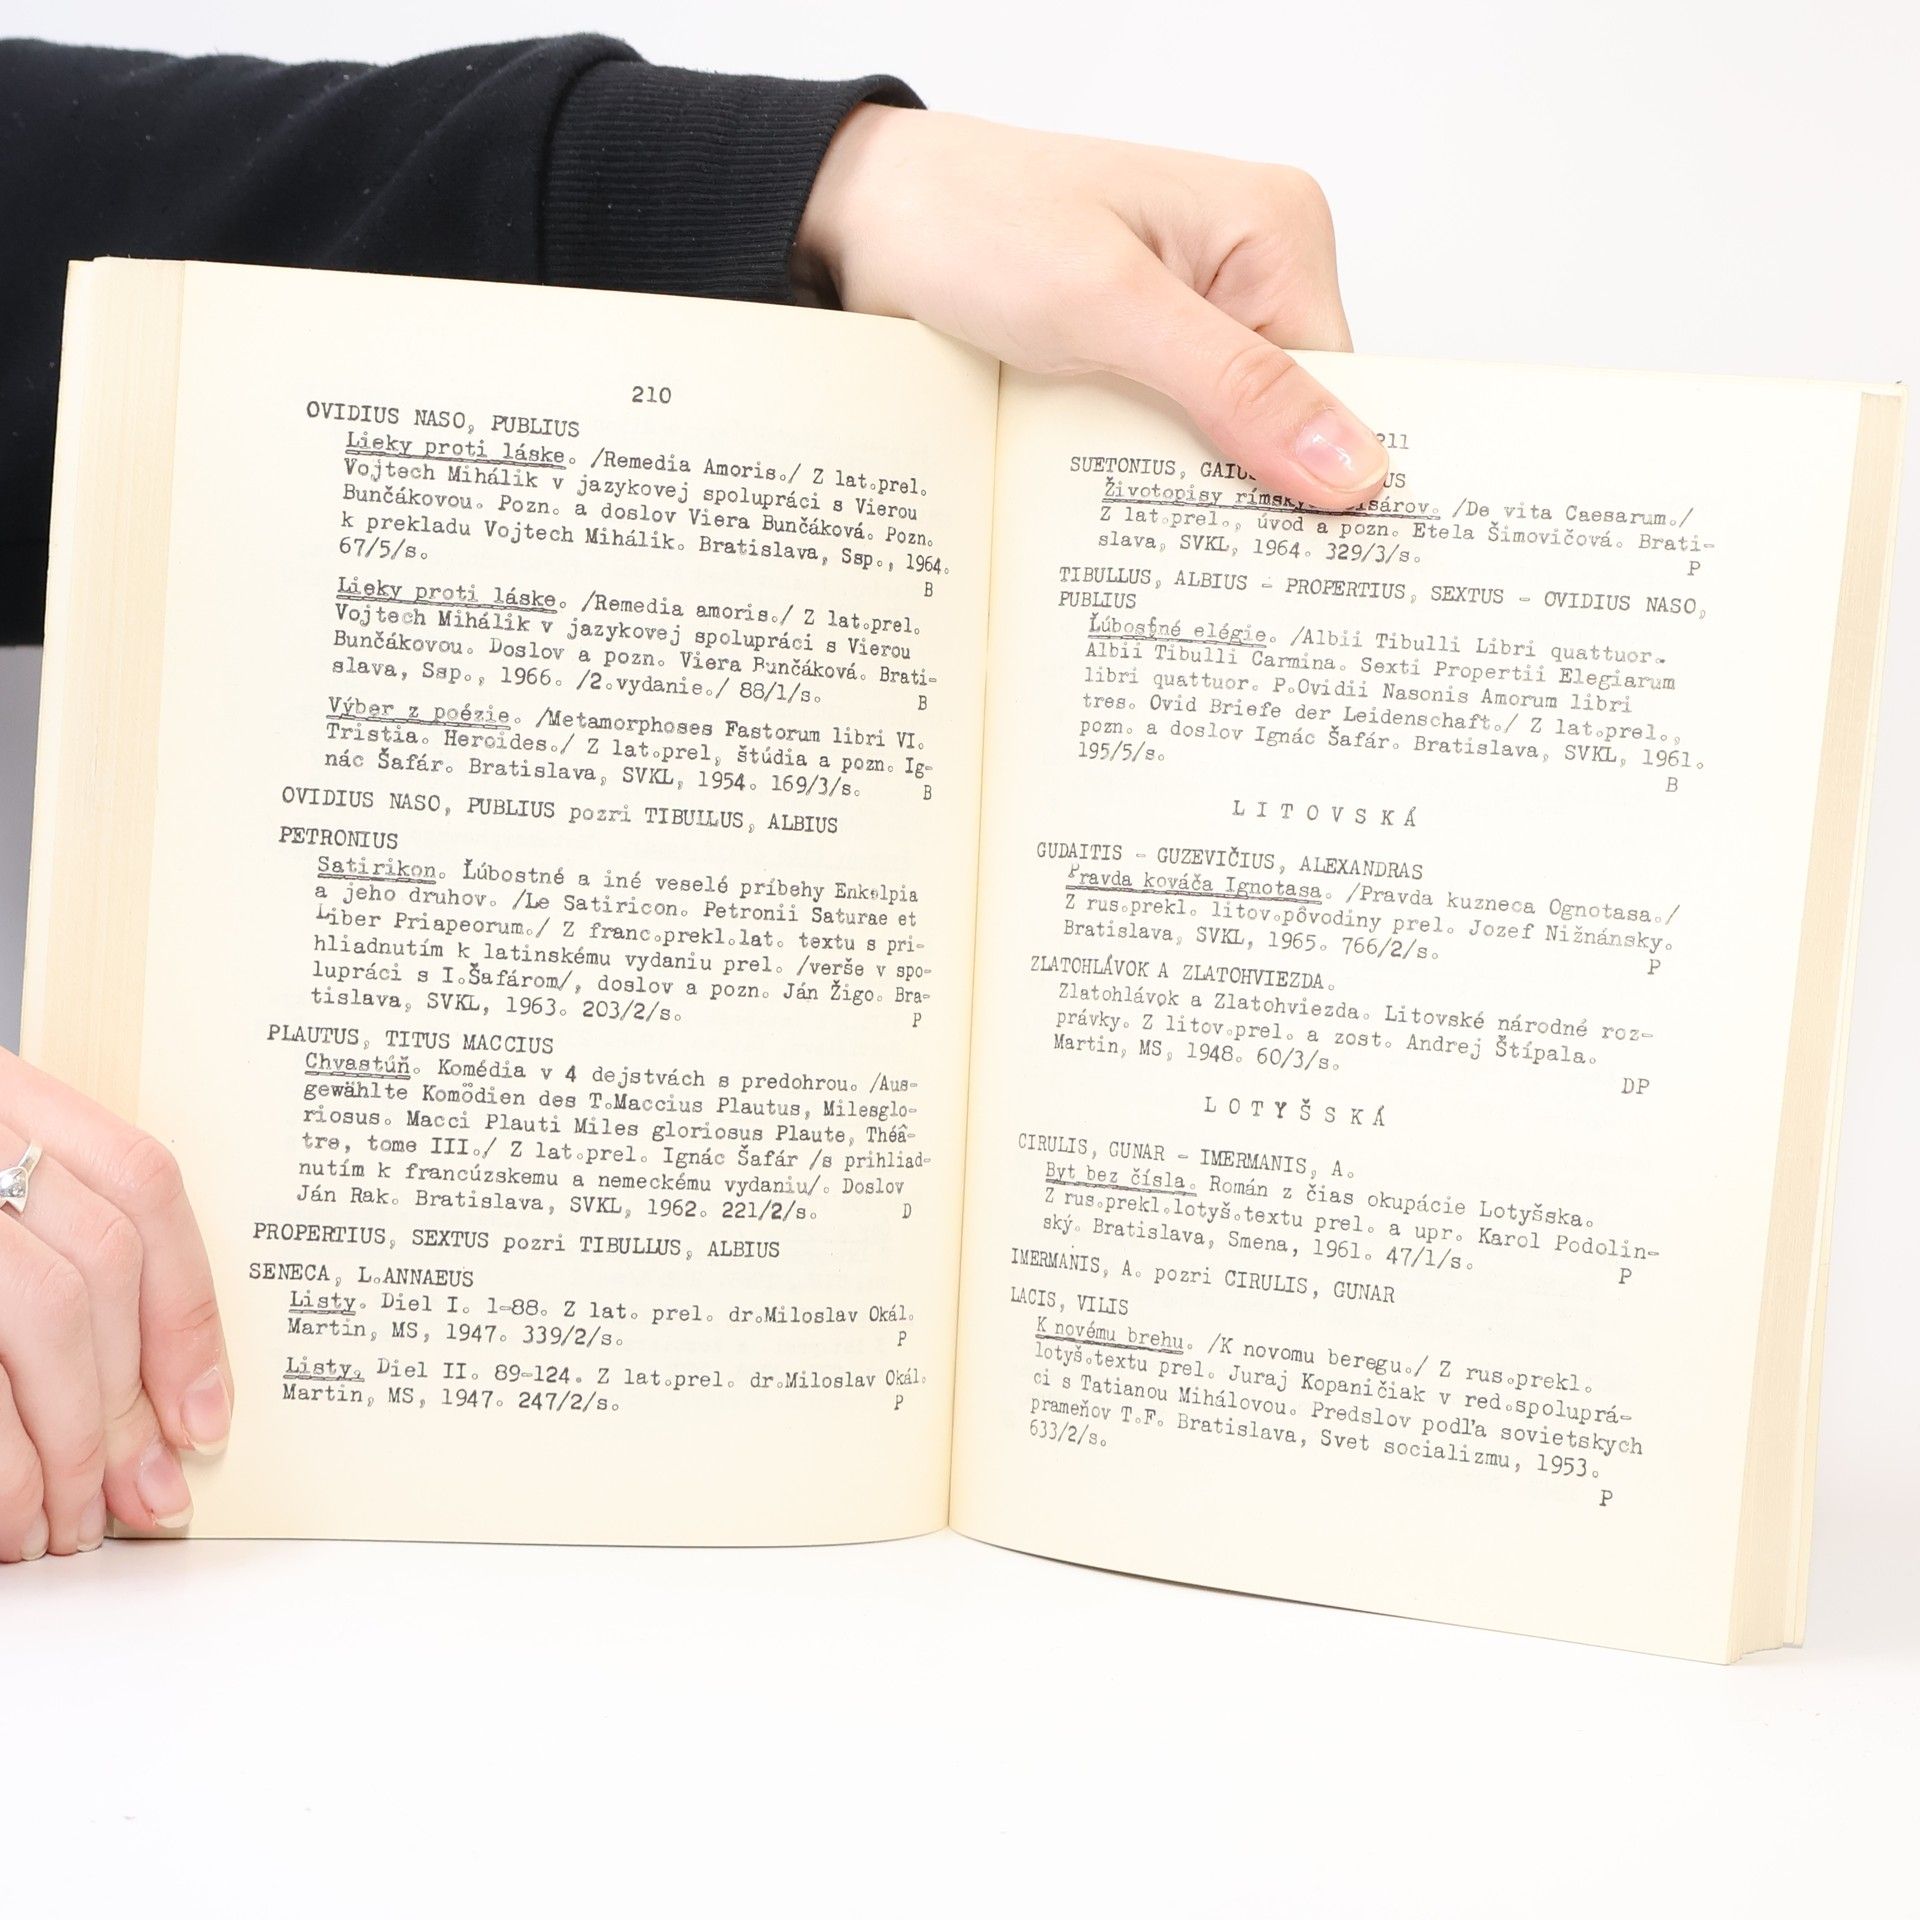 210
OVIDIUS NASO, PUBLIUS
Lieky proti láske. /Remedia Amoris./ Z lat.prel.
Vojtech Mihálik v jazykovej spolupráci s Vierou
Bunčákovou. Pozn. a doslov Viera Bunčáková. Pozn.
k prekladu Vojtech Mihálik. Bratislava, Ssp., 1964.
67/5/s.
B
Lieky proti láske. /Remedia amoris./ Z lat.prel.
Vojtech Mihálik v jazykovej spolupráci s Vierou
Bunčákovou. Doslov a pozn. Viera Bunčáková. Brati-
slava, Ssp., 1966. /2.vydanie./ 88/1/s.
B
Výber z poézie. /Metamorphoses Fastorum libri VI.
Tristia. Heroides./ Z lat.prel, štúdia a pozn. Ig-
nác Šafár. Bratislava, SVKL, 1954. 169/3/s.
B
OVIDIUS NASO, PUBLIUS pozri TIBULLUS, ALBIUS
PETRONIUS
Satirikon. Ľúbostné a iné veselé príbehy Enkolpia
a jeho druhov. /Le Satiricon. Petronii Saturae et
Liber Priapeorum./ Z franc.prekl.lat. textu s pri-
hliadnutím k latinskému vydaniu prel. /verše v spo-
lupráci s I.Šafárom/, doslov a pozn. Ján Žigo. Bra-
tislava, SVKL, 1963. 203/2/s.
P
PLAUTUS, TITUS MACCIUS
Chvastúň. Komédia v 4 dejstvách s predohrou. /Aus-
gewählte Komödien des T.Maccius Plautus, Milesglo-
riosus. Macci Plauti Miles gloriosus Plaute, Théâ-
tre, tome III./ Z lat.prel. Ignác Šafár /s prihliad-
nutím k francúzskemu a nemeckému vydaniu/. Doslov
Ján Rak. Bratislava, SVKL, 1962. 221/2/s.
D
PROPERTIUS, SEXTUS pozri TIBULLUS, ALBIUS
SENECA, L.ANNAEUS
Listy. Diel I. 1-88. Z lat. prel. dr.Miloslav Okál.
Martin, MS, 1947. 339/2/s.
P
Listy. Diel II. 89-124. Z lat.prel. dr.Miloslav Okál.
Martin, MS, 1947. 247/2/s.
P
211
SUETONIUS, GAIUS
Životopisy rímskych cisárov. /De vita Caesarum./
Z lat.prel., úvod a pozn. Etela Šimovičová. Brati-
slava, SVKL, 1964. 329/3/s.
P
TIBULLUS, ALBIUS - PROPERTIUS, SEXTUS - OVIDIUS NASO,
PUBLIUS
Ľúbostné elégie. /Albii Tibulli Libri quattuor.
Albii Tibulli Carmina. Sexti Propertii Elegiarum
libri quattuor. P.Ovidii Nasonis Amorum libri
tres. Ovid Briefe der Leidenschaft./ Z lat.prel.,
pozn. a doslov Ignác Šafár. Bratislava, SVKL, 1961.
195/5/s.
B
LITOVSKÁ
GUDAITIS - GUZEVIČIUS, ALEXANDRAS
Pravda kováča Ignotasa. /Pravda kuzneca Ognotasa./
Z rus.prekl. litov.pôvodiny prel. Jozef Nižnánsky.
Bratislava, SVKL, 1965. 766/2/s.
P
ZLATOHLÁVOK A ZLATOHVIEZDA.
Zlatohlávok a Zlatohviezda. Litovské národné roz-
právky. Z litov.prel. a zost. Andrej Štípala.
Martin, MS, 1948. 60/3/s.
DP
LOTYŠSKÁ
CIRULIS, GUNAR - IMERMANIS, A.
Byt bez čísla. Román z čias okupácie Lotyšska.
Z rus.prekl.lotyš.textu prel. a upr. Karol Podolin-
ský. Bratislava, Smena, 1961. 47/1/s.
P
IMERMANIS, A. pozri CIRULIS, GUNAR
LACIS, VILIS
K novému brehu. /K novomu beregu./ Z rus.prekl.
lotyš.textu prel. Juraj Kopaničiak v red.spoluprá-
ci s Tatianou Mihálovou. Predslov podľa sovietskych
prameňov T.F. Bratislava, Svet socializmu, 1953.
633/2/s.
P